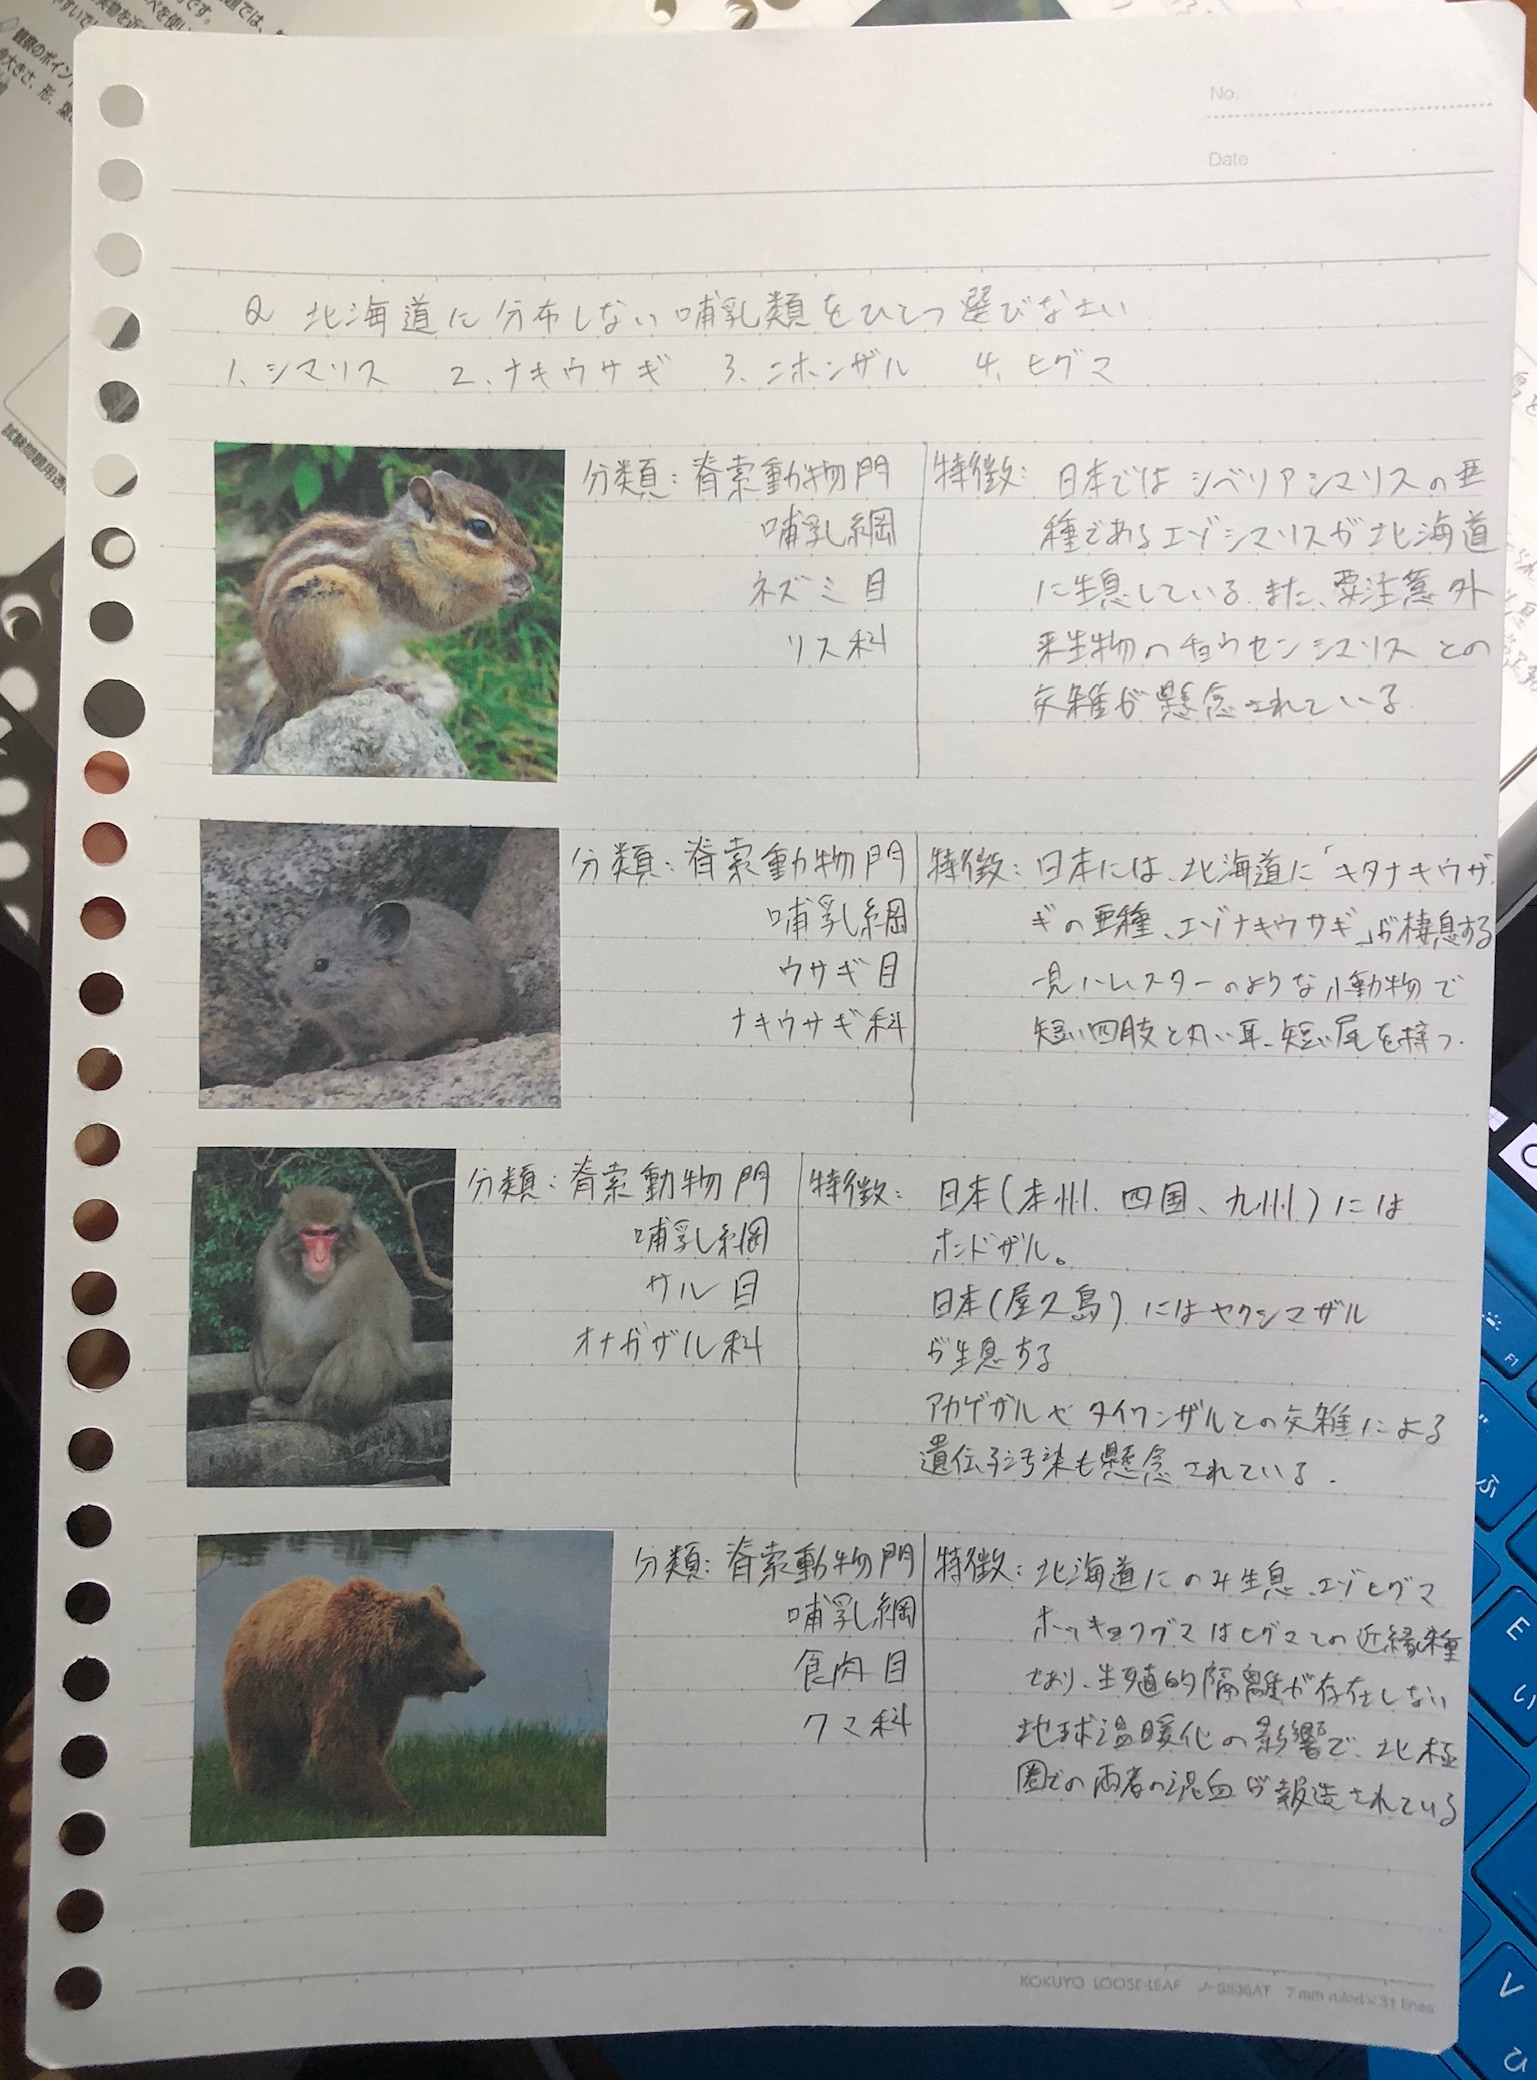 No.
Date
Q 北海道に分布しない哺乳類をひとつ選びなさい
1、シマリス 2、ナキウサギ 3、ニホンザル 4、ヒグマ
分類：脊索動物門
哺乳綱
ネズミ目
リス科
特徴：日本ではシベリアシマリスの亜
種であるエゾシマリスが北海道
に生息している。また、要注意外
来生物のチョウセンシマリスとの
交雑が懸念されている.
分類：脊索動物門
哺乳綱
ウサギ目
ナキウサギ科
特徴：日本には、北海道に「キタナキウサ
ギの亜種、エゾナキウサギ」が棲息する
一見ハムスターのような小動物で
短い四肢と丸い耳、短い尾を持つ.
分類：脊索動物門
哺乳綱
サル目
オナガザル科
特徴：日本(本州、四国、九州)には
ホンドザル。
日本(屋久島)にはヤクシマザル
が生息する
アカゲザルやタイワンザルとの交雑による
遺伝子汚染も懸念されている.
分類：脊索動物門
哺乳綱
食肉目
クマ科
特徴：北海道にのみ生息、エゾヒグマ
ホッキョクグマはヒグマとの近縁種
であり、生殖的隔離が存在しない
地球温暖化の影響で、北極
圏での両者の混血が報告されている
KOKUYO LOOSE-LEAF ノ-S836AT 7 mm ruled×31 lines
F1
E
い
V
ひ